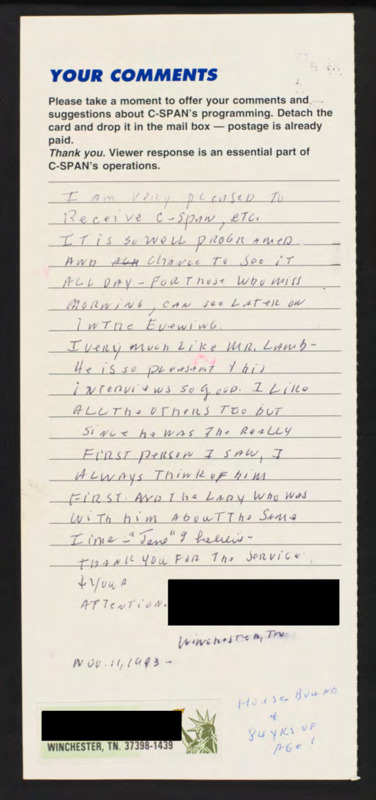 YOUR COMMENTS
Please take a moment to offer your comments and
suggestions about C-SPAN's programming. Detach the
card and drop it in the mail box — postage is already
paid.
Thank you. Viewer response is an essential part of
C-SPAN's operations.
I am very pleased to
Receive C-Span, etc.
IT is so well programed
AND Chance to See iT
ALL DAY - FOR Those Who miss
MORNING, CAN see LATER ON
IN The Evening.
I very much Like MR. Lamb-
He is so pleasant & his
interviews so good. I Like
ALL The oThers Too but
Since he was The Really
First person I saw, I
ALWAYS Think of him
FIRST. AND The LADY Who was
WiTh him About The Same
Time - "Jane" I believe -
THANK YOU FOR The Service
& Your
ATTention.
Winchester, Tn
NOV. 11, 1993 -
House Bound
&
84 YRS OF
AGE
WINCHESTER, TN. 37398-1439